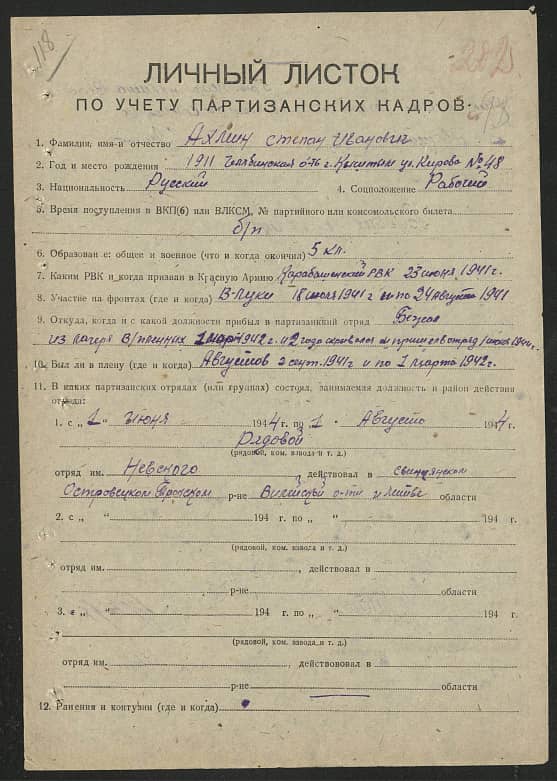 118
282
ЛИЧНЫЙ ЛИСТОК
ПО УЧЕТУ ПАРТИЗАНСКИХ КАДРОВ.
1. Фамилия, имя и отчество Ахлин Степан Иванович
2. Год и место рождения 1911 Челябинская о-ть г. Кыштым ул. Кирова № 48
3. Национальность Русский 4. Соцположение Рабочий
5. Время поступления в ВКП(б) или ВЛКСМ, № партийного или комсомольского билета
б/п
6. Образован е: общее и военное (что и когда окончил) 5 кл.
7. Каким РВК и когда призван в Красную Армию Карабашенский РВК 23 июня 1941г.
8. Участие на фронтах (где и когда) В-Луки 18 июля 1941 г. и по 24 августа 1941
9. Откуда, когда и с какой должности прибыл в партизанкий отряд Бежал
из лагеря В/пленных 1 март 1942 г. и 2 года в отряд 1 июня 1944г.
10. Был ли в плену (где и когда) Августов с сент. 1941 г и по 1 марта 1942г.
11. В каких партизанских отрядах (или группах) состоял, занимаемая должность и район действия
отряда:
1. с „ 1 " Июня 1944 г. по „ 1 " Августа 1944 г.
Рядовой
(рядовой, ком. взвода и т. д.)
отряд им. Невского действовал в Свинцянском
Островецком Трокском р-не Вилейской о-ти и Литве области
2. с „ " 194 г. по „ " 194 г.
(рядовой, ком. взвода и т. д.)
отряд им. , действовал в
р-не области
3. с „ " 194 г. по „ " 194 г.
(рядовой, ком. взвода и т. д.)
отряд им. , действововал в
р-не области
12. Ранения и контузии (где и когда)